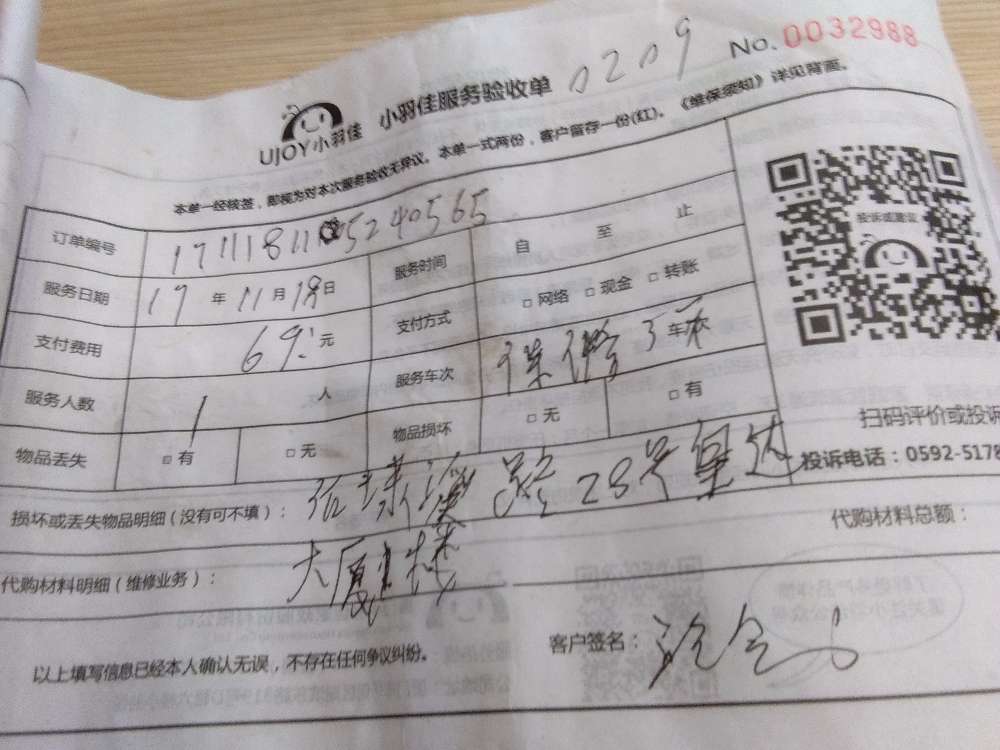 No. 0032988
UJOY小羽佳 小羽佳服务验收单 0209
本单一经核签，即视为对本次服务验收无异议。本单一式两份，客户留存一份(红)。《维保须知》详见背面。
订单编号 服务时间 自 至 止
服务日期 17 年 11 月 18 日 支付方式 □ 网络 □ 现金 □ 转账
支付费用 69 元 服务车次 车次
服务人数 1 人 物品损坏 □ 无 □ 有
物品丢失 □ 有 □ 无
投诉或建议
扫码评价或投诉
投诉电话：0592-5178
损坏或丢失物品明细（没有可不填）： 路28号
代购材料总额：
代购材料明细（维修业务）： 大厦 楼
以上填写信息已经本人确认无误，不存在任何争议纠纷。
客户签名：